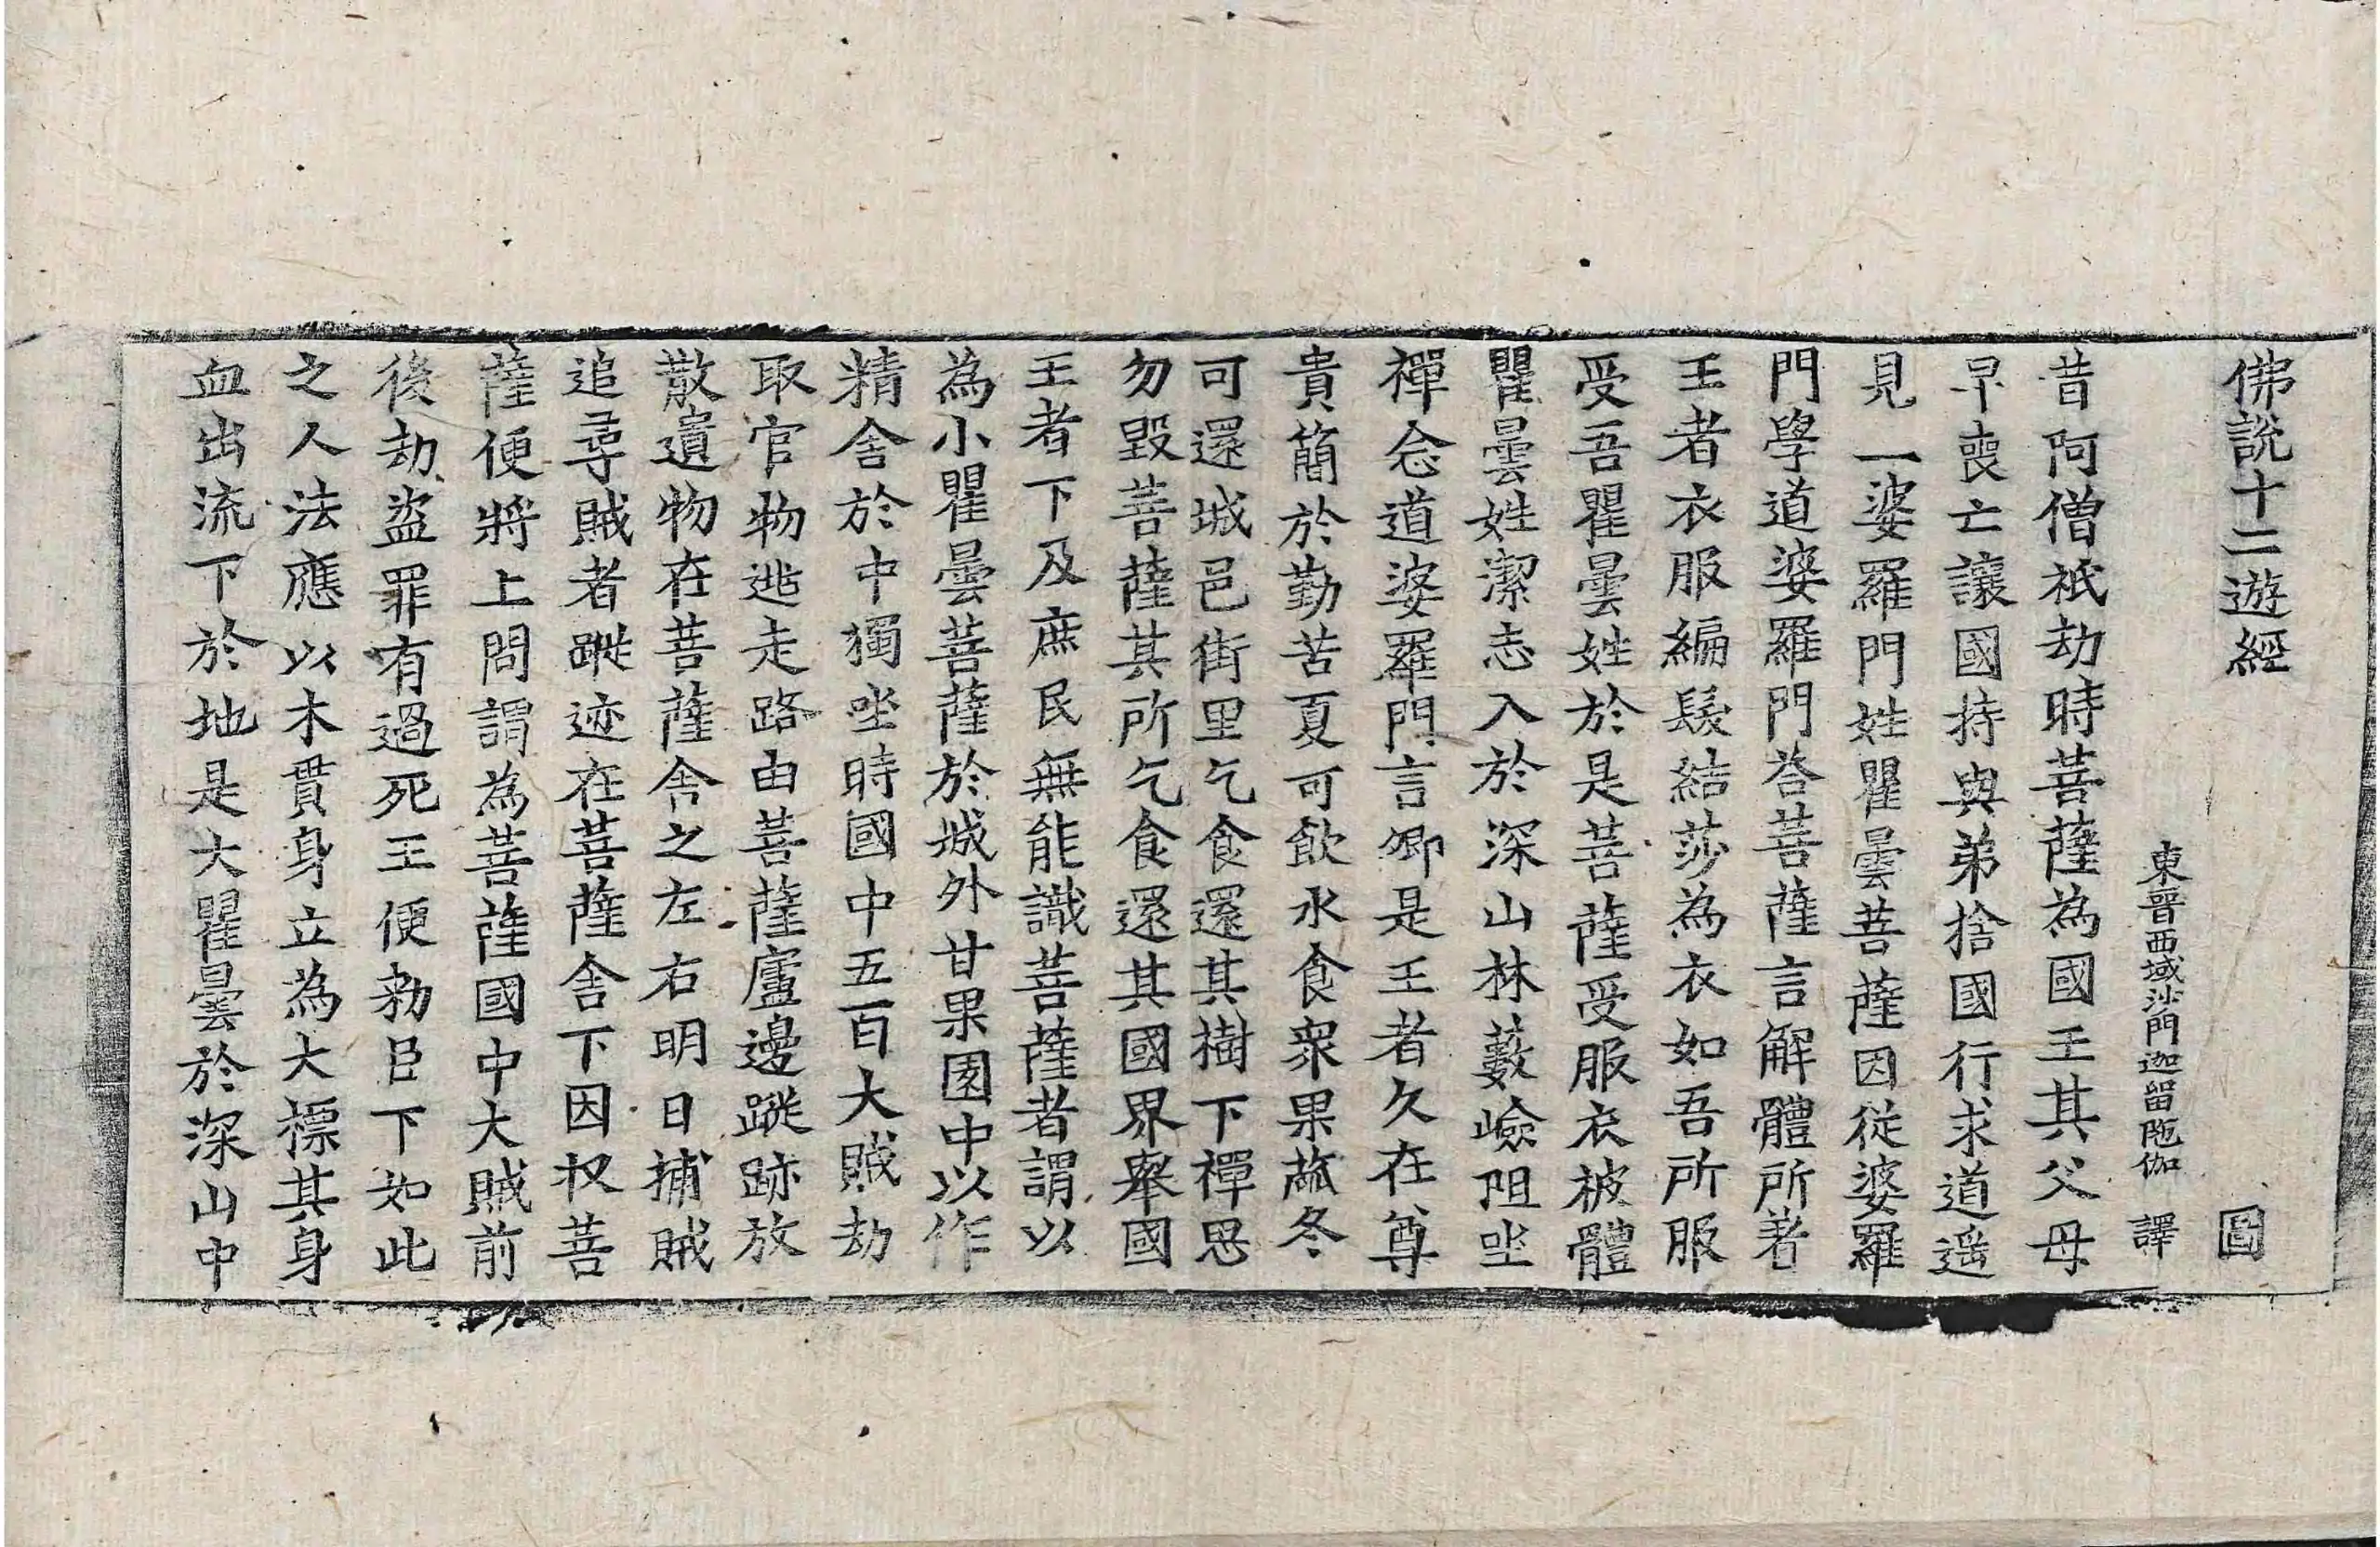 佛說十二遊經 圖
東晉西域沙門迦留陁伽 譯
昔阿僧祇劫時菩薩為國王其父母
早喪亡讓國持與弟捨國行求道遥
見一婆羅門姓瞿曇菩薩因從婆羅
門學道婆羅門荅菩薩言解體所著
王者衣服編髮結莎為衣如吾所服
受吾瞿曇姓於是菩薩受服衣被體
瞿曇姓潔志入於深山林藪嶮阻坐
禪念道婆羅門言卿是王者久在尊
貴簡於勤苦夏可飲水食衆果蓏冬
可還城邑街里乞食還其樹下禪思
勿毀菩薩其所乞食還其國界舉國
王者下及庶民無能識菩薩者謂以
為小瞿曇菩薩於城外甘果園中以作
精舍於中獨坐時國中五百大賊劫
取官物逃走路由菩薩廬邊蹤跡放
散遺物在菩薩舍之左右明日捕賊
追尋賊者蹤迹在菩薩舍下因収菩
薩便將上問謂為菩薩國中大賊前
後劫盜罪有過死王便勑臣下如此
之人法應以木貫身立為大標其身
血出流下於地是大瞿曇於深山中